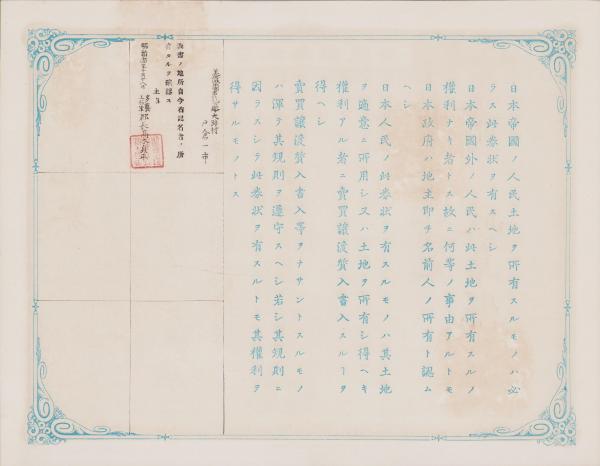 日本帝國ノ人民土地ヲ所有スルモノハ必
ラス此券狀ヲ有スヘシ
日本帝國外ノ人民ハ此土地ヲ所有スルノ
權利ナキ者トス故ニ何等ノ事由アルトモ
日本政府ハ地主即チ名前人ノ所有ト認ム
ヘシ
日本人民ノ此券狀ヲ有スルモノハ其土地
ヲ適意ニ所用シ又ハ土地ヲ所有シ得ヘキ
權利アル者ニ賣買讓渡質入書入スルヿヲ
得ヘシ
賣買讓渡質入書入等ヲナサントスルモノ
ハ渾テ其規則ヲ遵守スヘシ若シ其規則ニ
因ラスシテ此券狀ヲ有スルトモ其權利ヲ
得サルモノトス
大跡村
戸倉一市
書ノ地所自今右記名者ノ所
有タルヲ確認ス
郡長